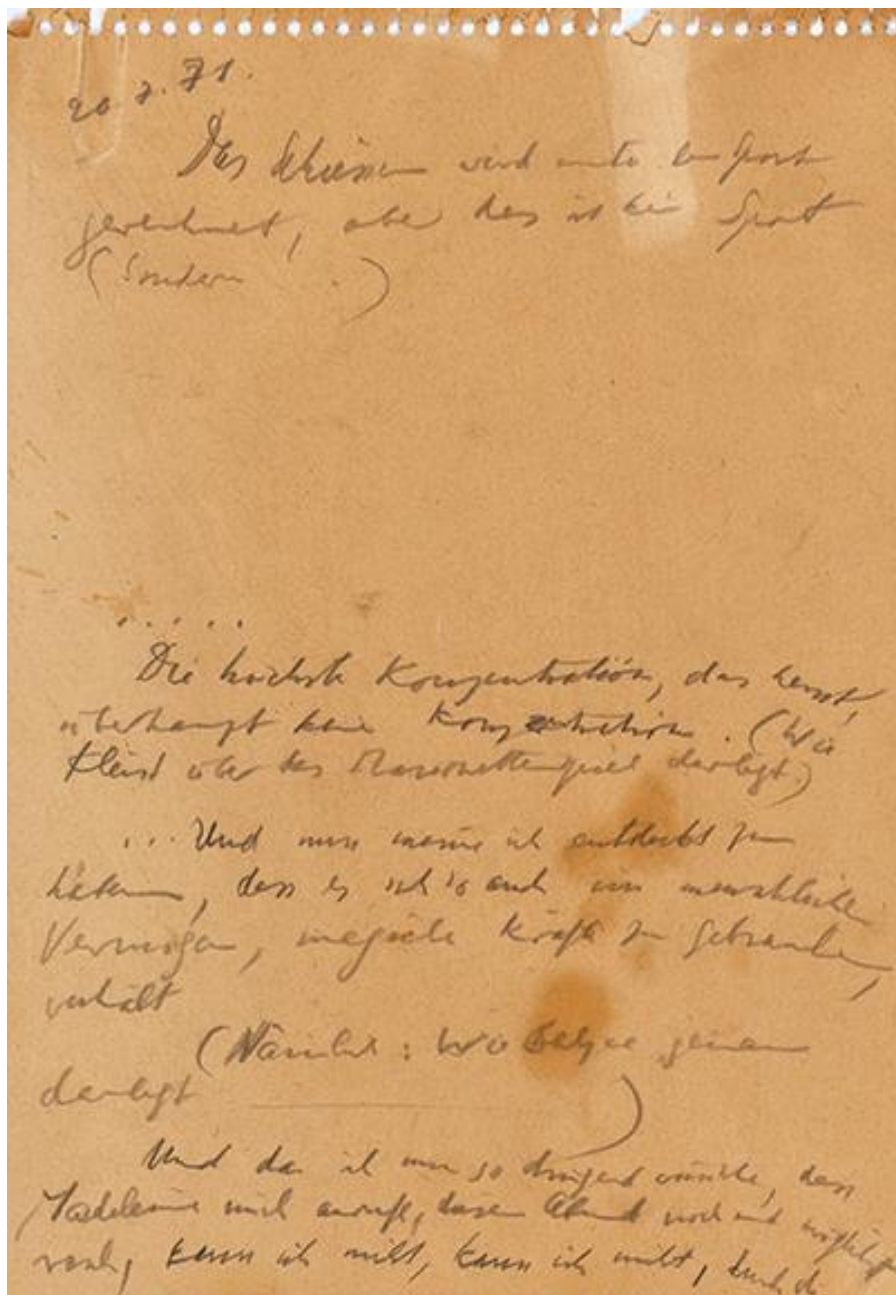 20.7.71.
Das Schiessen wird unter den Sport
gerechnet, aber das ist kein Sport
(Sondern .)
.....
Die höchste Konzentration, das heisst,
überhaupt keine Konzentration. (Wie
Kleist über das Marionettenspiel darlegt.)
... Und nun meine ich entdeckt zu
haben, dass es sich so auch um menschliche
Vermögen, magische Kräfte zu gebrauchen,
verhält
(Nämlich: Wie Balzac genau
darlegt )
Und da ich nun so dringend wünsche, dass
Madeleine mich anruft, diesen Abend noch und möglichst
rasch, kann ich nicht, kann ich nicht, durch